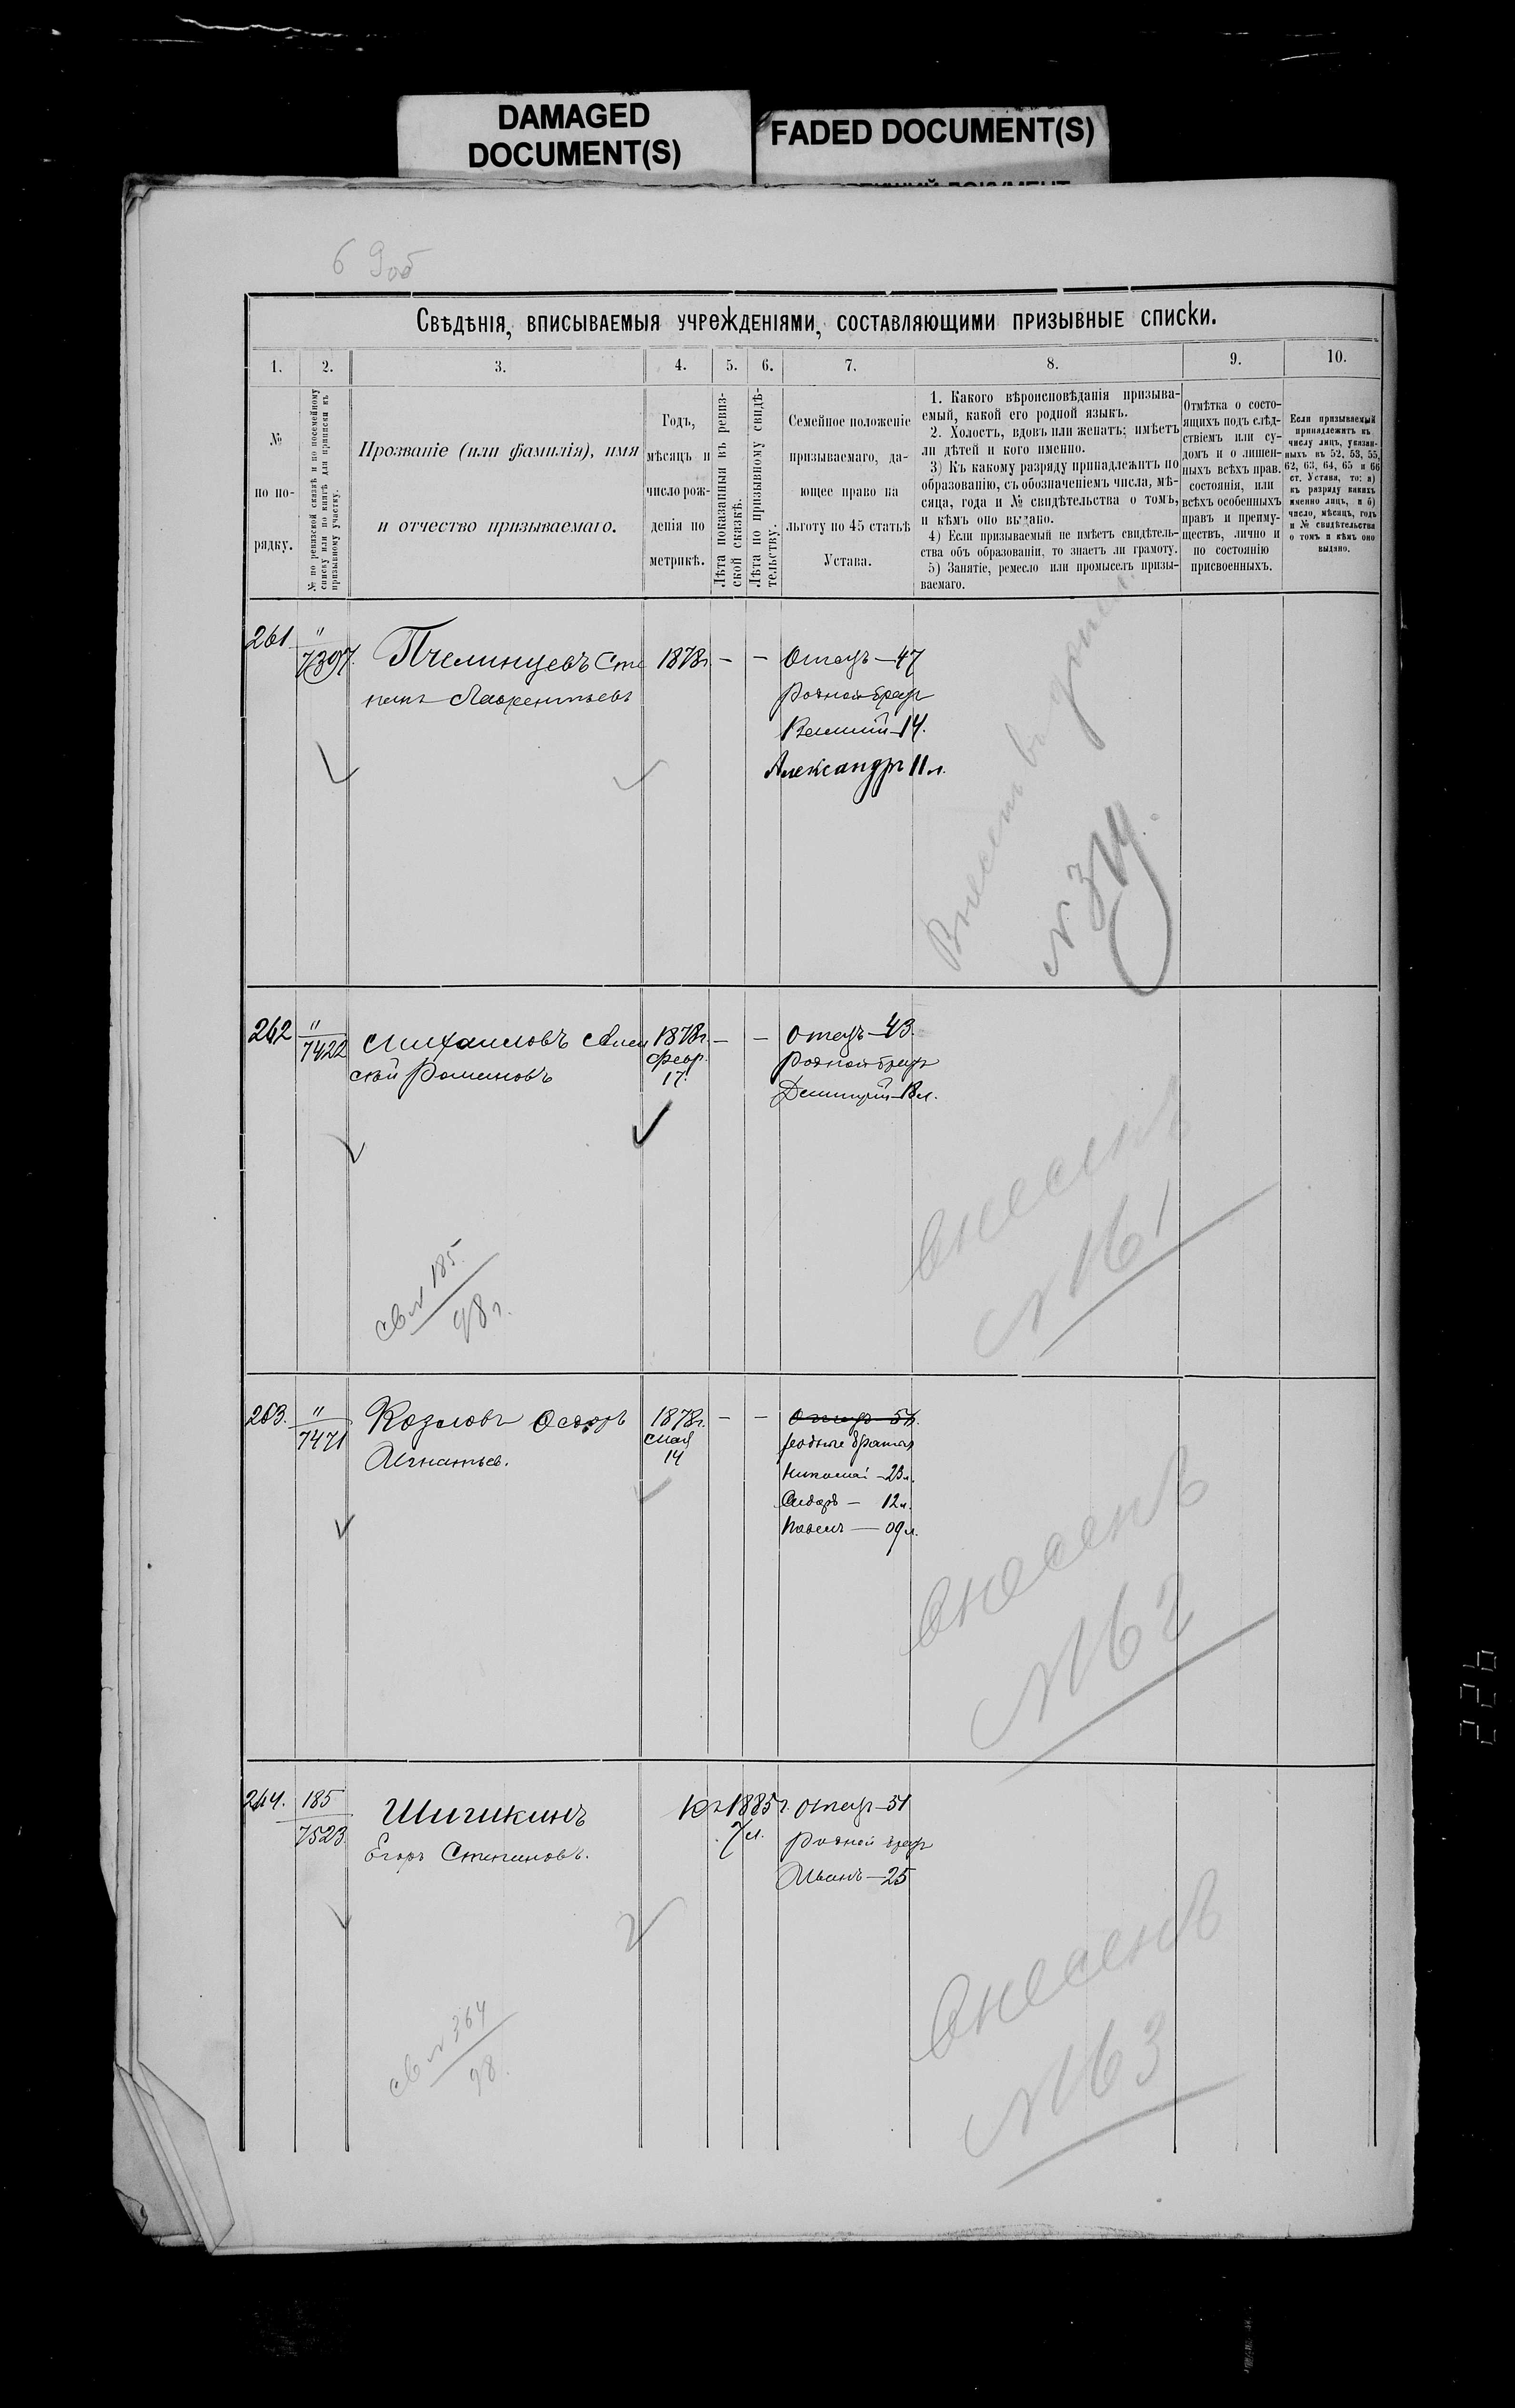 DAMAGED
DOCUMENT(S)
FADED DOCUMENT(S)
69об
Свѣдѣнія, вписываемыя учрежденіями, составляющими призывные списки.
1. 2. 3. 4. 5. 6. 7. 8. 9. 10.
№
по по-
рядку.
№ по ревизской сказкѣ и по посемейному
списку или по книгѣ для приписки къ
призывному участку.
Прозваніе (или фамилія), имя
и отчество призываемаго.
Годъ,
мѣсяцъ и
число рож-
денія по
метрикѣ.
Лѣта показанныя въ ревиз-
ской сказкѣ.
Лѣта по призывному свидѣ-
тельству.
Семейное положеніе
призываемаго, да-
ющее право на
льготу по 45 статьѣ
Устава.
1. Какого вѣроисповѣданія призыва-
емый, какой его родной языкъ.
2. Холостъ, вдовъ или женатъ; имѣетъ
ли дѣтей и кого именно.
3) Къ какому разряду принадлежитъ по
образованію, съ обозначеніемъ числа, мѣ-
сяца, года и № свидѣтельства о томъ,
и кѣмъ оно выдано.
4) Если призываемый не имѣетъ свидѣтель-
ства объ образованіи, то знаетъ ли грамоту.
5) Занятіе, ремесло или промыселъ призы-
ваемаго.
Отмѣтка о состо-
ящихъ подъ слѣд-
ствіемъ или су-
домъ и о лишен-
ныхъ всѣхъ прав.
состоянія, или
всѣхъ особенныхъ
правъ и преиму-
ществъ, лично и
по состоянію
присвоенныхъ.
Если призываемый
принадлежитъ къ
числу лицъ, указан-
ныхъ въ 52, 53, 55,
62, 63, 64, 65 и 66
ст. Устава, то: а)
къ разряду какихъ
именно лицъ, и б)
число, мѣсяцъ, годъ
и № свидѣтельства
о томъ и кѣмъ оно
выдано.
261 "
7397. Пчелинцевъ Сте 1878г. – – Отецъ – 47
панъ Лаврентьевъ
Родной братъ
14.
Александръ 11 л.
Внесенъ въ
№ 314.
262 "
7422 Михаиловъ Алек 1878г. – – Отецъ – 43.
сѣй Романовъ
февр.
17.
Родной братъ
Дмитрій – 18 л.
св № 185.
98 г.
внесенъ
№ 161
263. "
7471 Козловъ Ѳедоръ 1878г. – – Отецъ 51.
Игнатьев.
мая
14
родные братья
Николай – 23 л.
Сидоръ – 12 л.
Павелъ – 09 л.
внесенъ
№ 162
264. 185
7523. Шичикинъ 1885г. Отецъ – 51
7 л.
Егоръ Степановъ.
Родной братъ
Иванъ – 25
св № 364
98.
внесенъ
№ 163
226